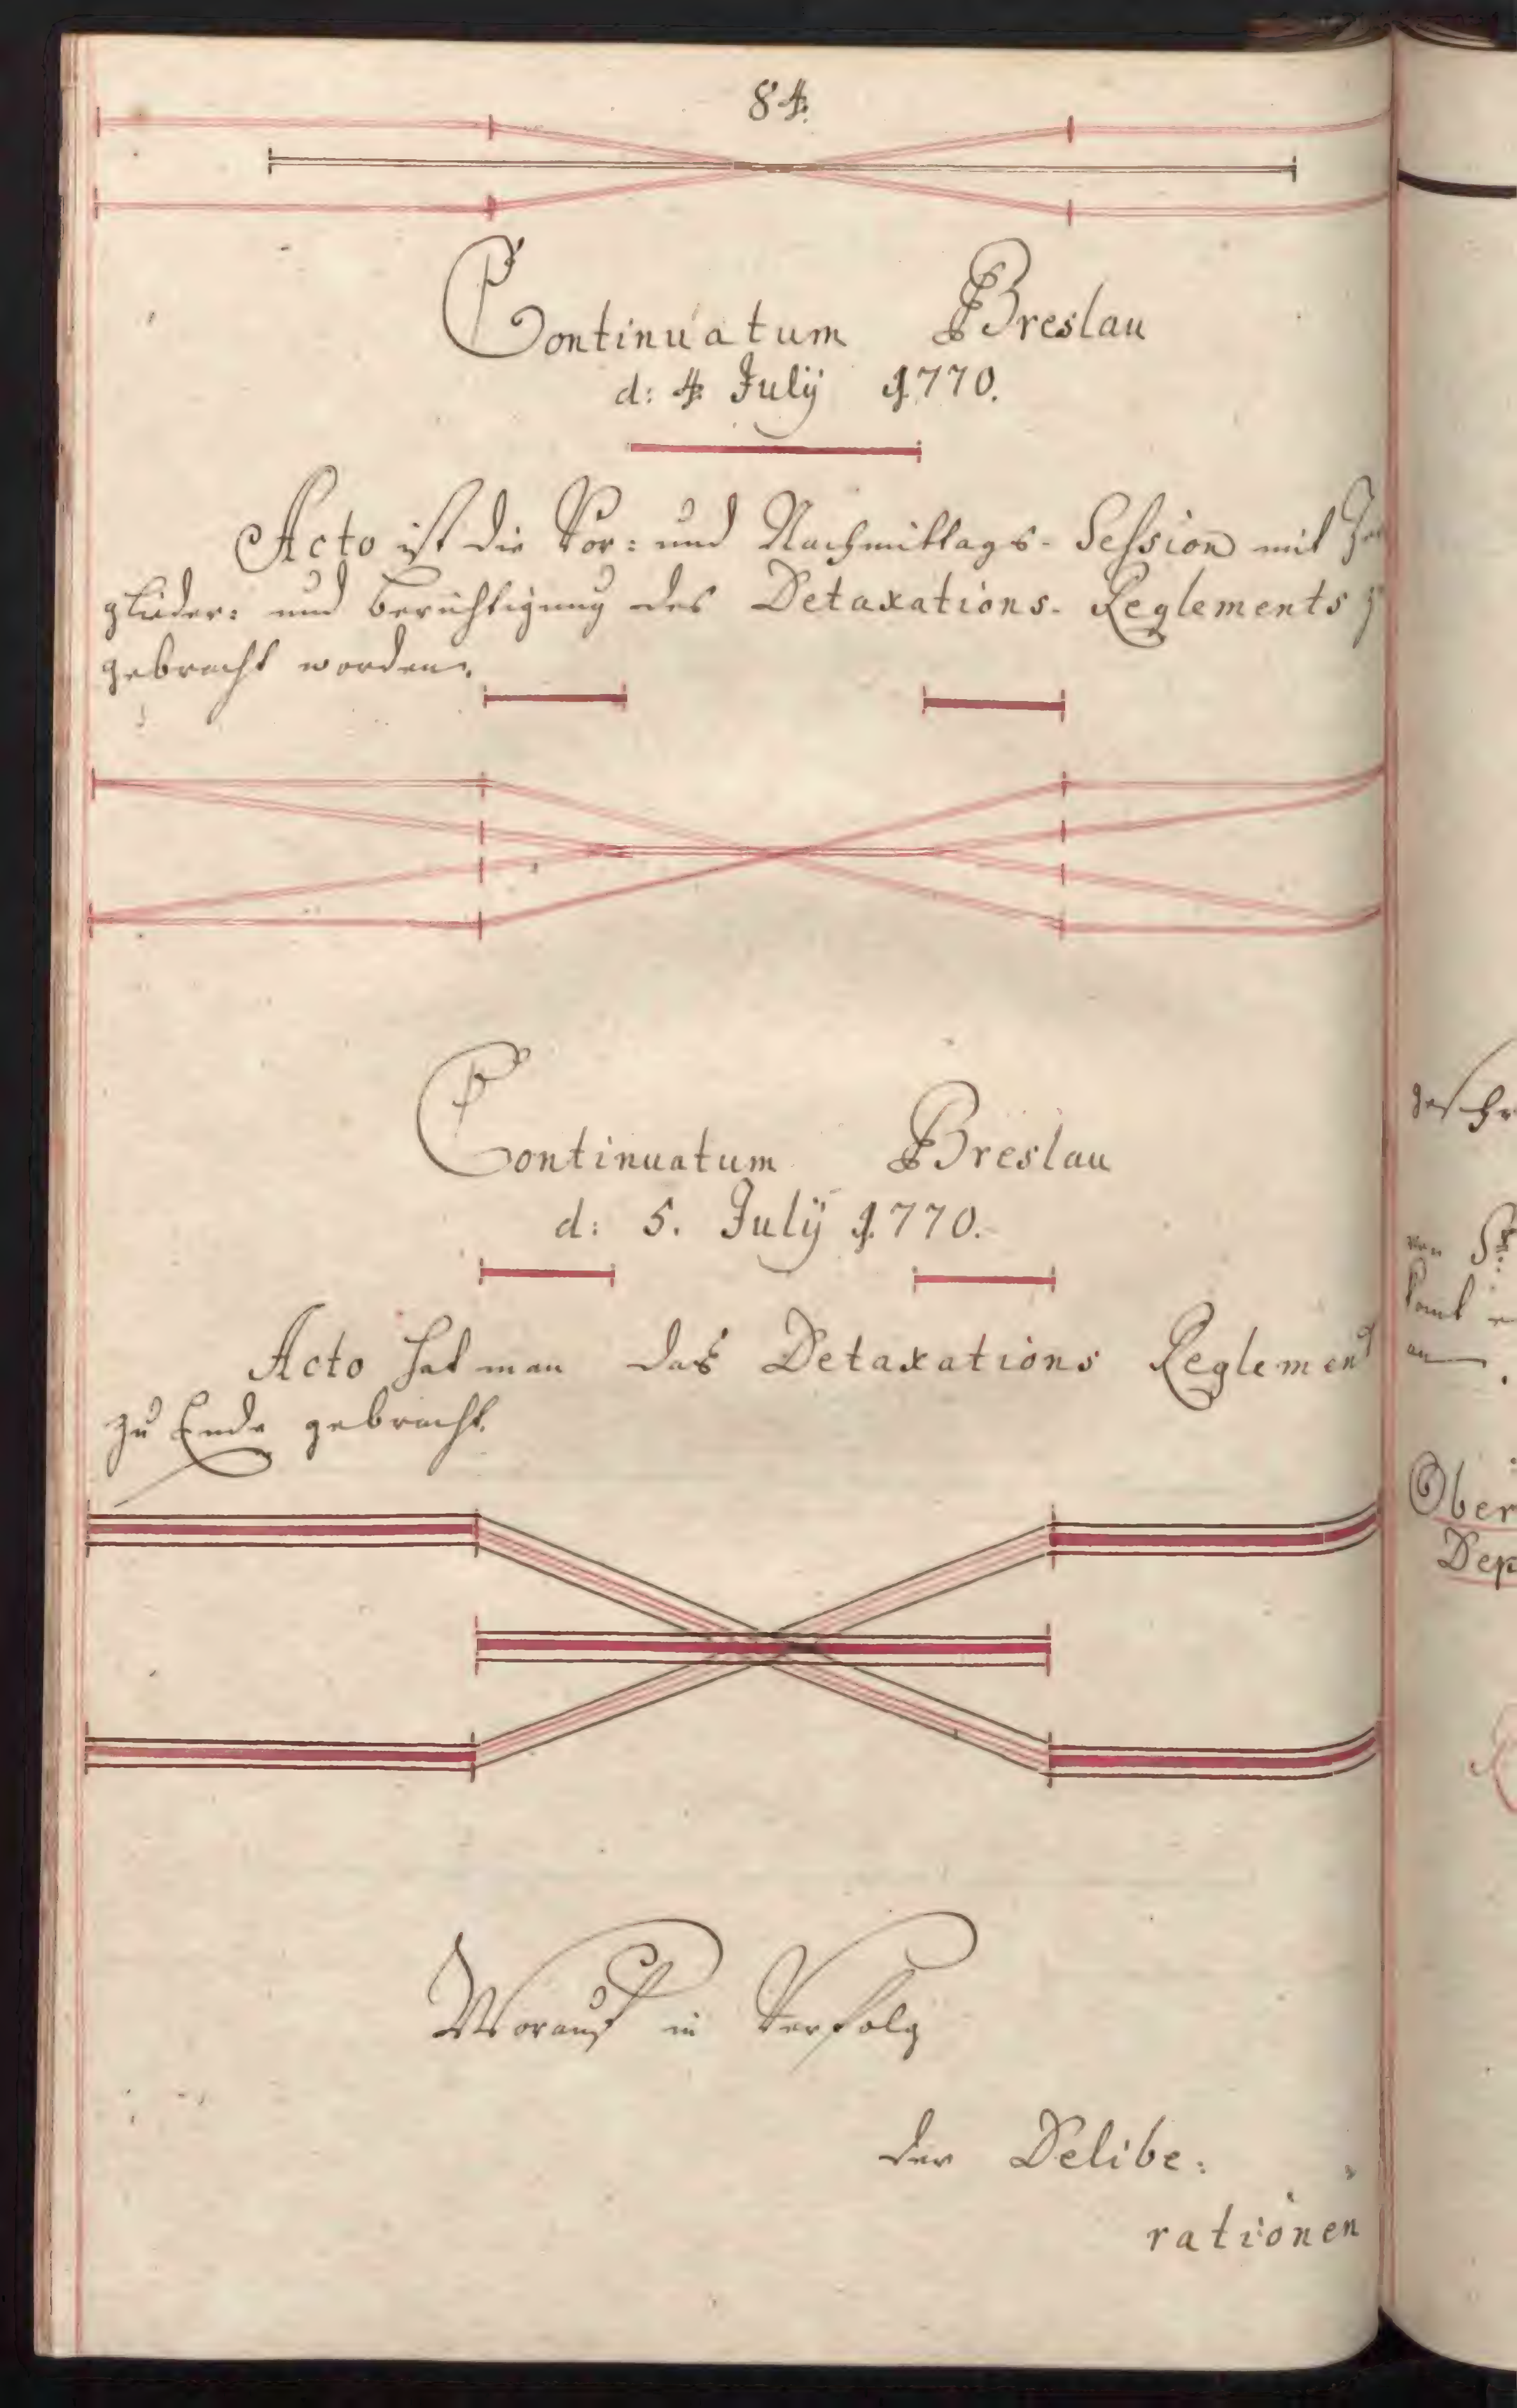 84.
Continuatum Breslau
d: 4 July 1770.
Acto ist die Vor: und Nachmittags-Session mit
glieder: und Berichtigung des Detaxations-Reglements
gebracht worden.
Continuatum Breslau
d: 5. July 1770.
Acto hat man das Detaxations Reglement
zu Ende gebracht.
Worauf in Verfolg
der Delibe:
rationen
Ober
Dep